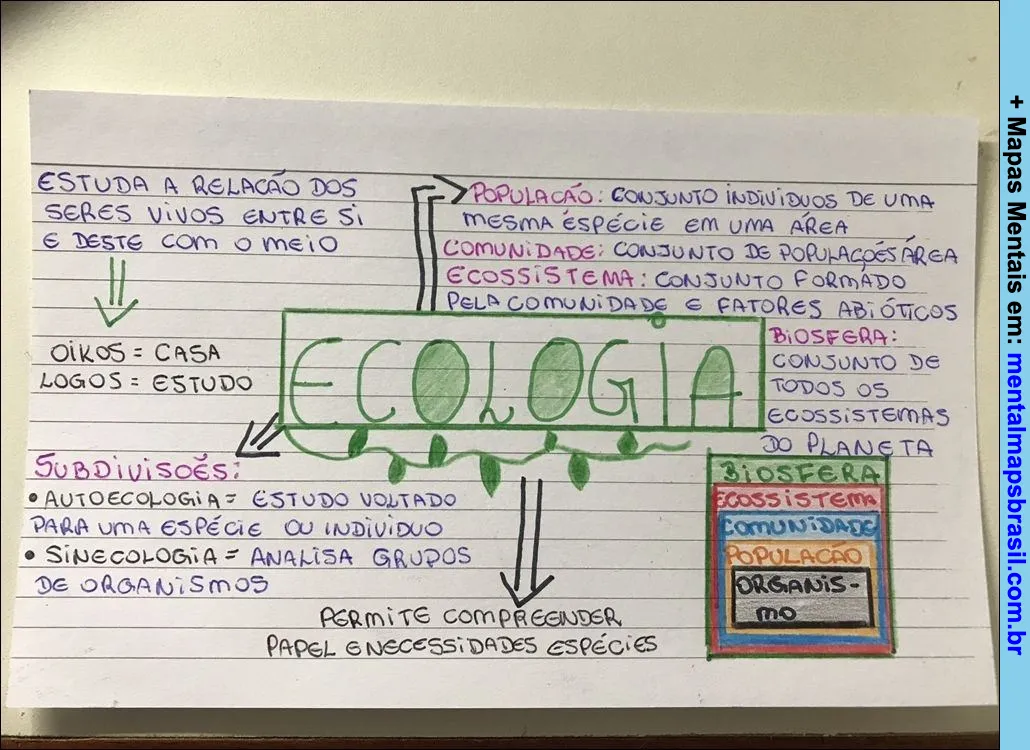 ESTUDA A RELAÇÃO DOS
SERES VIVOS ENTRE SI
E DESTE COM O MEIO
OIKOS = CASA
LOGOS = ESTUDO
POPULAÇÃO: CONJUNTO INDIVIDUOS DE UMA
MESMA ÉSPÉCIE EM UMA ÁREA
COMUNIDADE: CONJUNTO DE POPULAÇÕES ÁREA
ECOSSISTEMA: CONJUNTO FORMADO
PELA COMUNIDADE E FATORES ABIÓTICOS
BIOSFERA:
CONJUNTO DE
TODOS OS
ECOSSISTEMAS
DO PLANETA
ECOLOGIA
SUBDIVISOÊS:
• AUTOECOLOGIA = ESTUDO VOLTADO
PARA UMA ESPÉCIE OU INDIVIDUO
• SINECOLOGIA = ANALISA GRUPOS
DE ORGANISMOS
PERMITE COMPREENDER
PAPEL E NECESSIDADES ESPÉCIES
BIOSFERA
ECOSSISTEMA
COMUNIDADE
POPULAÇÃO
ORGANIS-
MO
+ Mapas Mentais em: mentalmapsbrasil.com.br